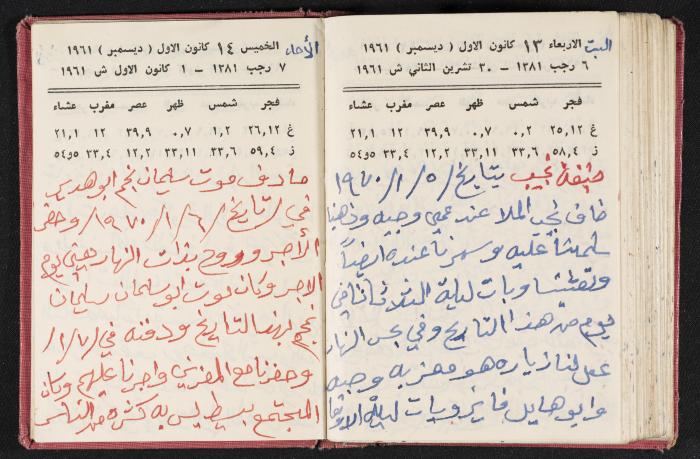 السبت
الاربعاء ١٣ كانون الاول ( ديسمبر ) ١٩٦١
٦ رجب ١٣٨١ – ٣٠ تشرين الثاني ش ١٩٦١
فجر شمس ظهر عصر مغرب عشاء
غ ٢٥,١٢ ٠,٢ ٠,٧ ٣٩,٩ ١٢ ٢١,١
ز ٥٨,٤ ٣٣,٦ ٣٣,١١ ١٢,٢ ٣٣,٤ ٥٤و٥
ضيفة نجيب بتاريخ /٥/١/١٩٧٠
ضاف نجيب الملا عند عمي وجيه وذهبنا
سلمنا عليه وسهرنا عنده ايضاً
وتعشينا وبات ليلة الثلاثاء في
يوم من هذا التاريخ وفي نفس النهار
عمل لنا زياره هو ومعزبه وجيه
وابو هايل فايز وبات ليلة الاربعاء
الأحد
الخميس ١٤ كانون الاول ( ديسمبر ) ١٩٦١
٧ رجب ١٣٨١ – ١ كانون الاول ش ١٩٦١
فجر شمس ظهر عصر مغرب عشاء
غ ٢٦,١٢ ١,٢ ٠,٧ ٣٩,٩ ١٢ ٢١,١
ز ٥٩,٤ ٣٣,٦ ٣٣,١١ ١٢,٢ ٣٣,٤ ٥٤و٥
صادف موت سليمان نجم ابو هدير
في /تاريخ /٦/١/١٩٧٠/ وحضر
الأجر وروح بذات النهار يوم
الاجر وكان موت ابو سلمان سليمان
نجم بهذا التاريخ ودفنه في /٧/١/
وحضرنا مع المعزيين واجرنا عليهم وكان
المجتمع بسيط ليس به كثره من الناس